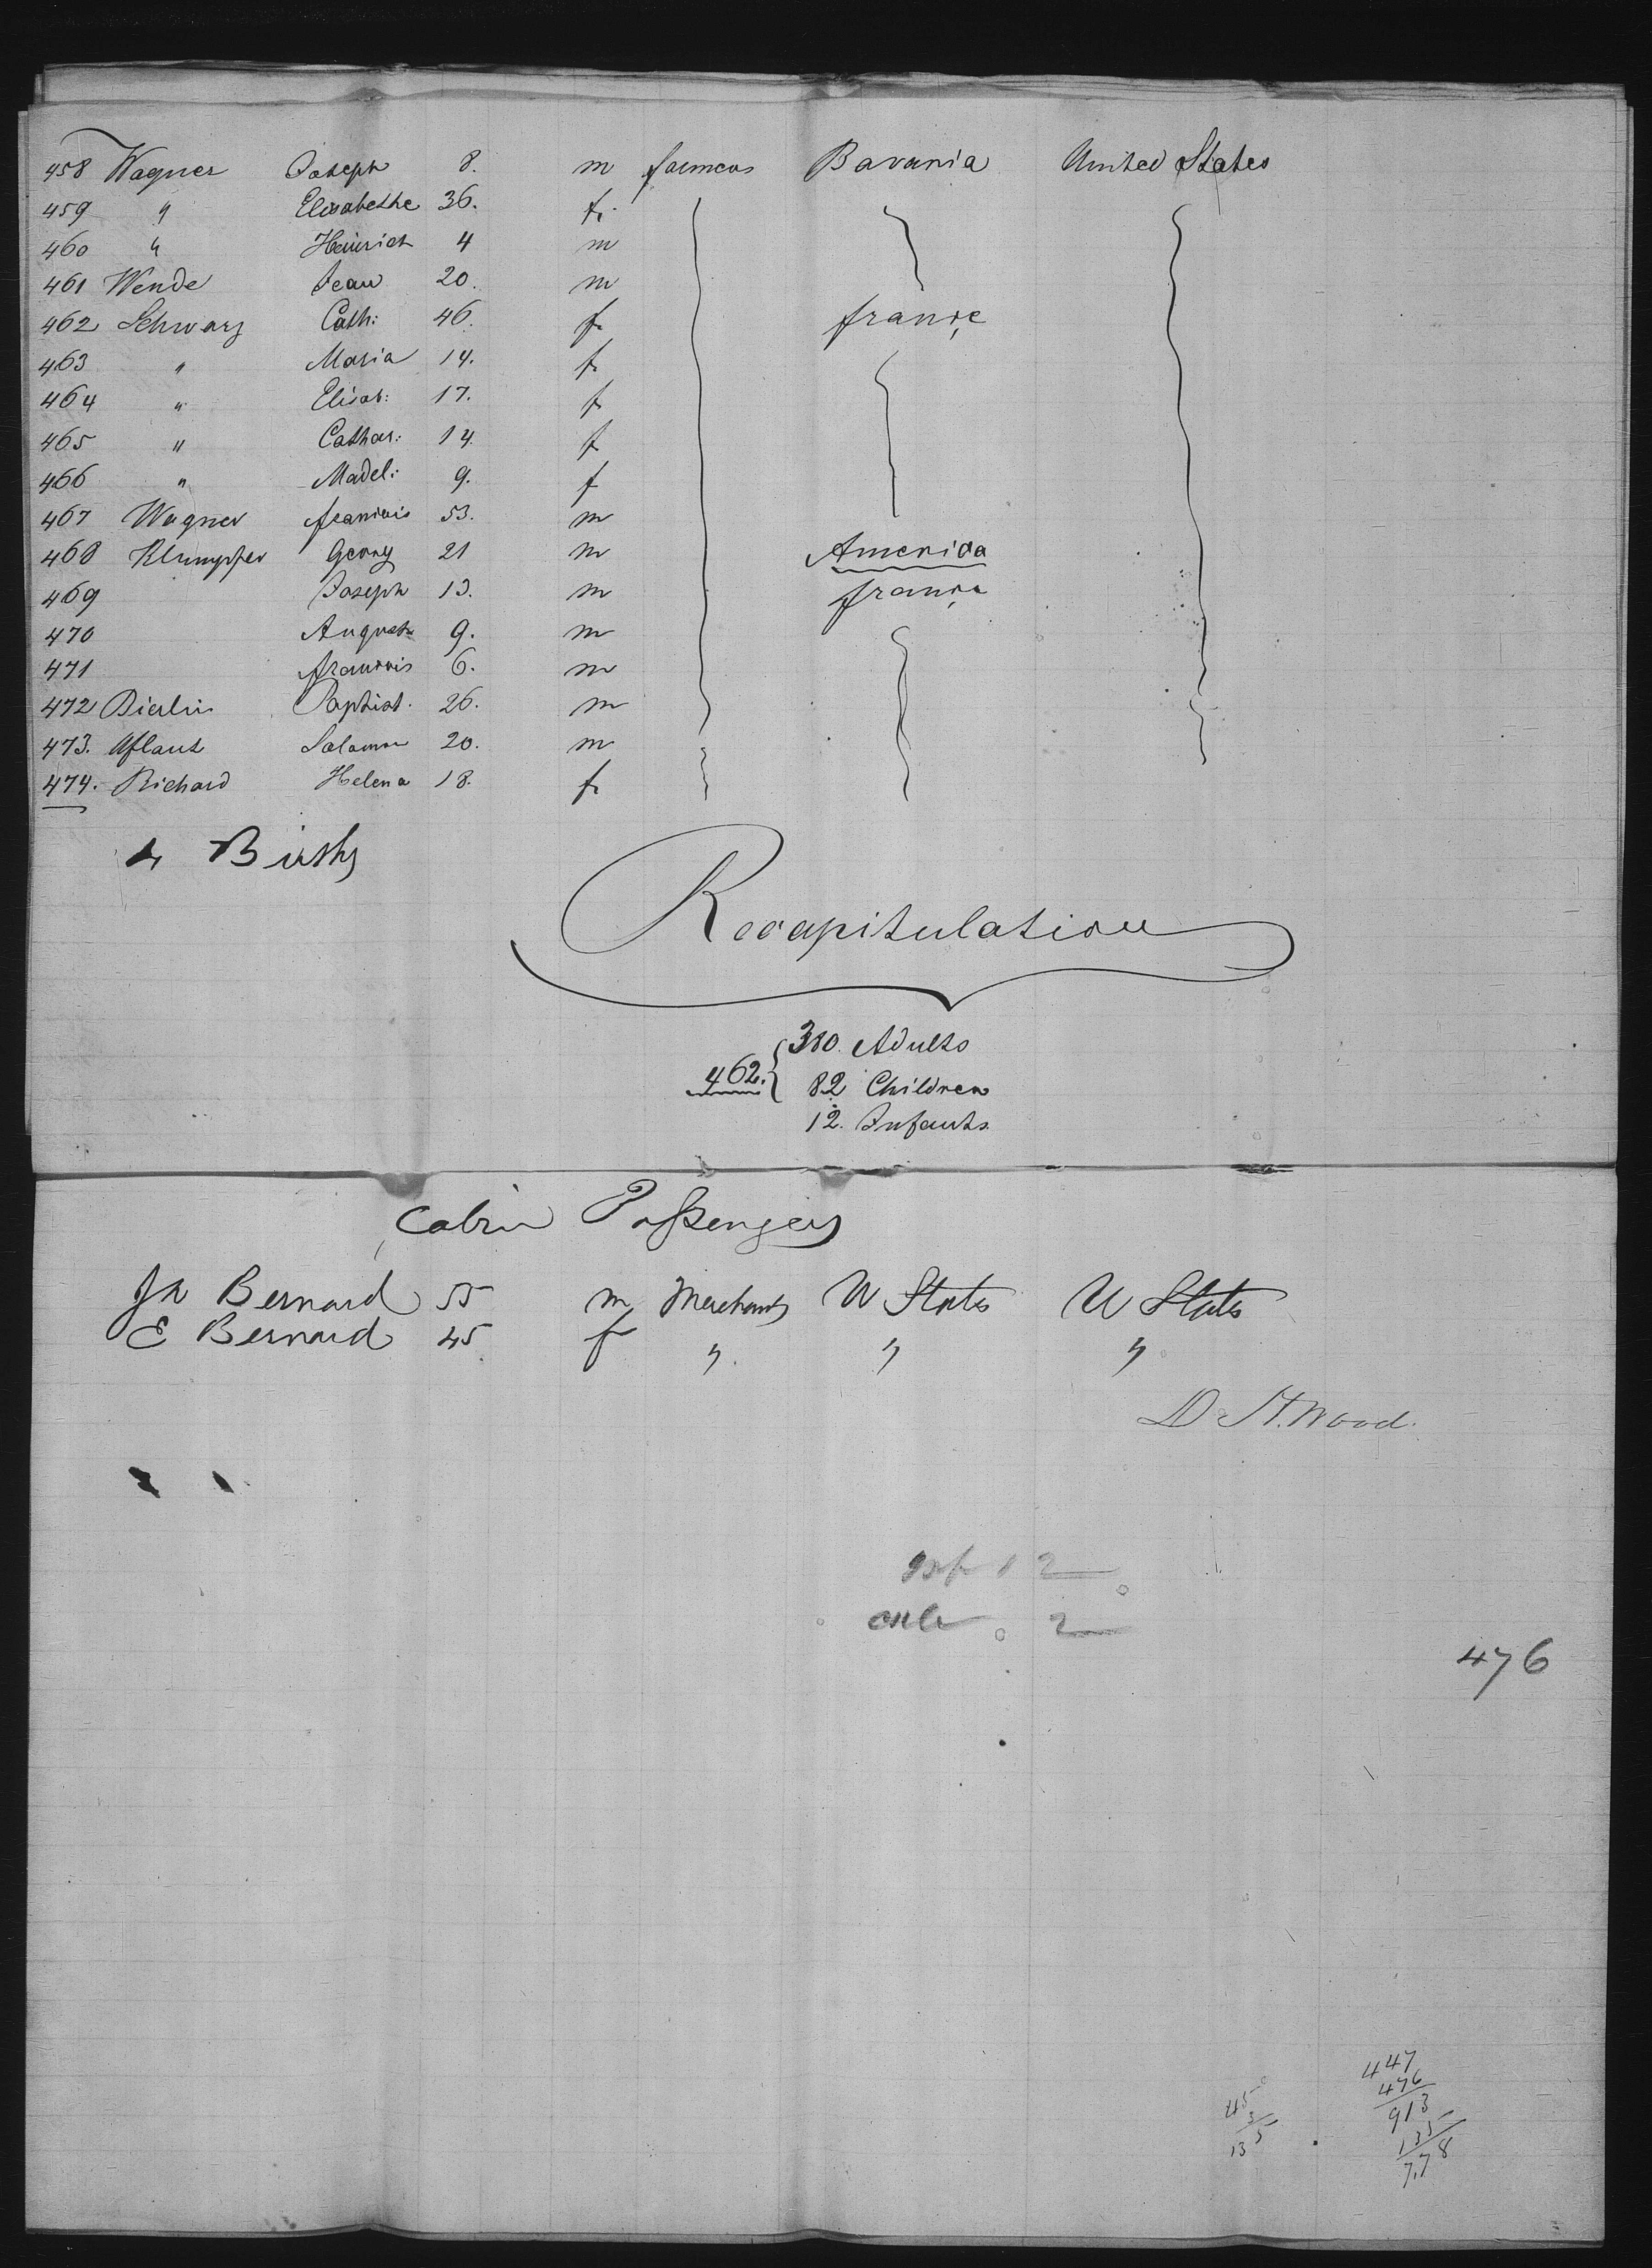 458 Wagner Joseph 8. m farmers Bavaria United States
459 " Elisabethe 36. f.
460 " Heinrich 4 m
461 Wende Jean 20. m
462 Schwarz Cath: 46. f. france
463 " Maria 14. f.
464 " Elisab: 17. f
465 " Cathar: 14. f
466 " Madel: 9. f
467 Wagner francois 53. m
468 Klumpfer Georg 21 m America
469 Joseph 13. m france
470 August 9. m
471 francois 6. m
472 Bierlin Baptist. 26. m
473. Aflant Salomon 20. m
474. Richard Helena 18. f.
4 Births
Recapitulation
380. Adults
462. 82 Children
12. Infants.
Cabin Passengers
Jn Bernard 55 m Merchants U States U States
E Bernard 45 f " " "
D. H. Wood.
inf 12
2
476
447
476
913
135
778
45
3
135